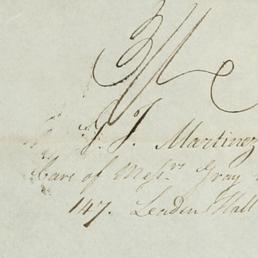 J. J. Martinez
Care of Messrs Gray
147. Leaden Hall